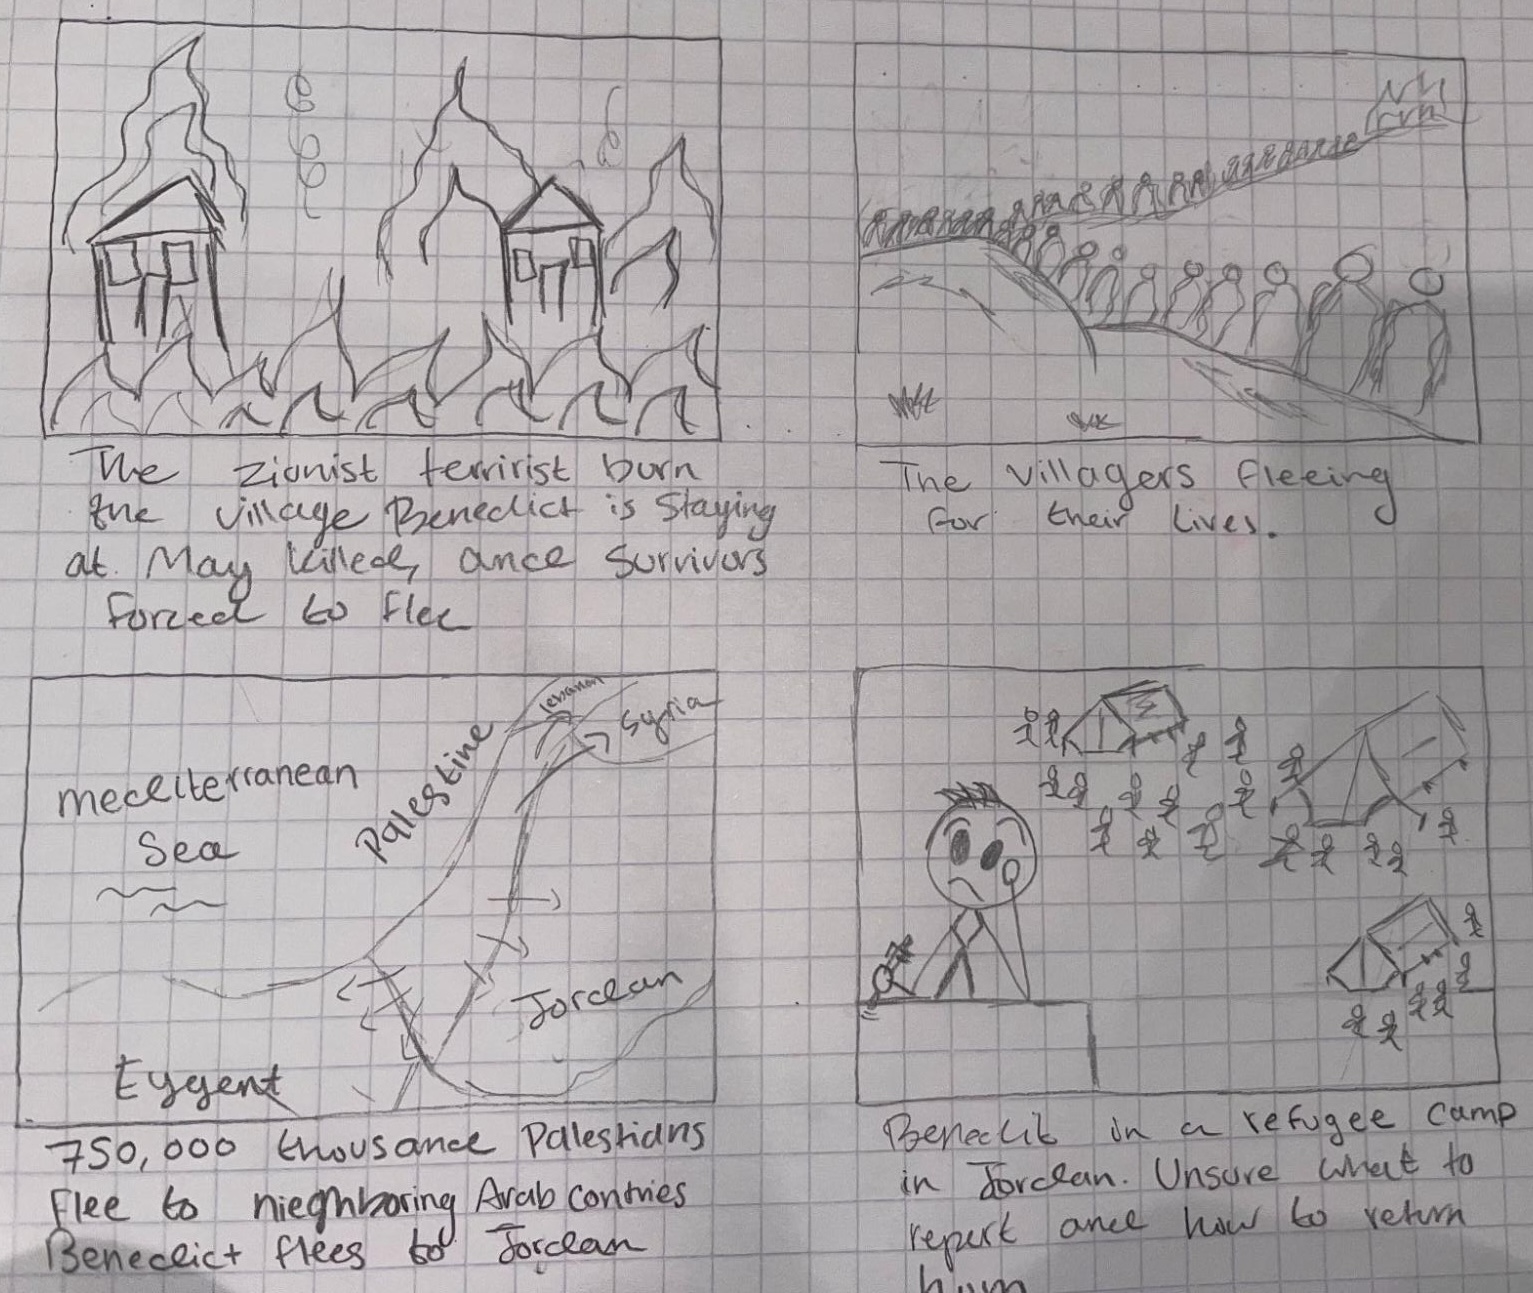 The zionist terririst burn
the village Benedict is Staying
at. May killed, and survivors
forced to flee
The villagers fleeing
for their lives.
mediterranean
Sea
Palestine
lebanon
Syria
Jordan
Eygent
750,000 thousand Palestians
flee to nieghboring Arab contries
Benedict flees to Jordan
Benedit in a refugee camp
in Jordan. Unsure what to
report and how to return
hom